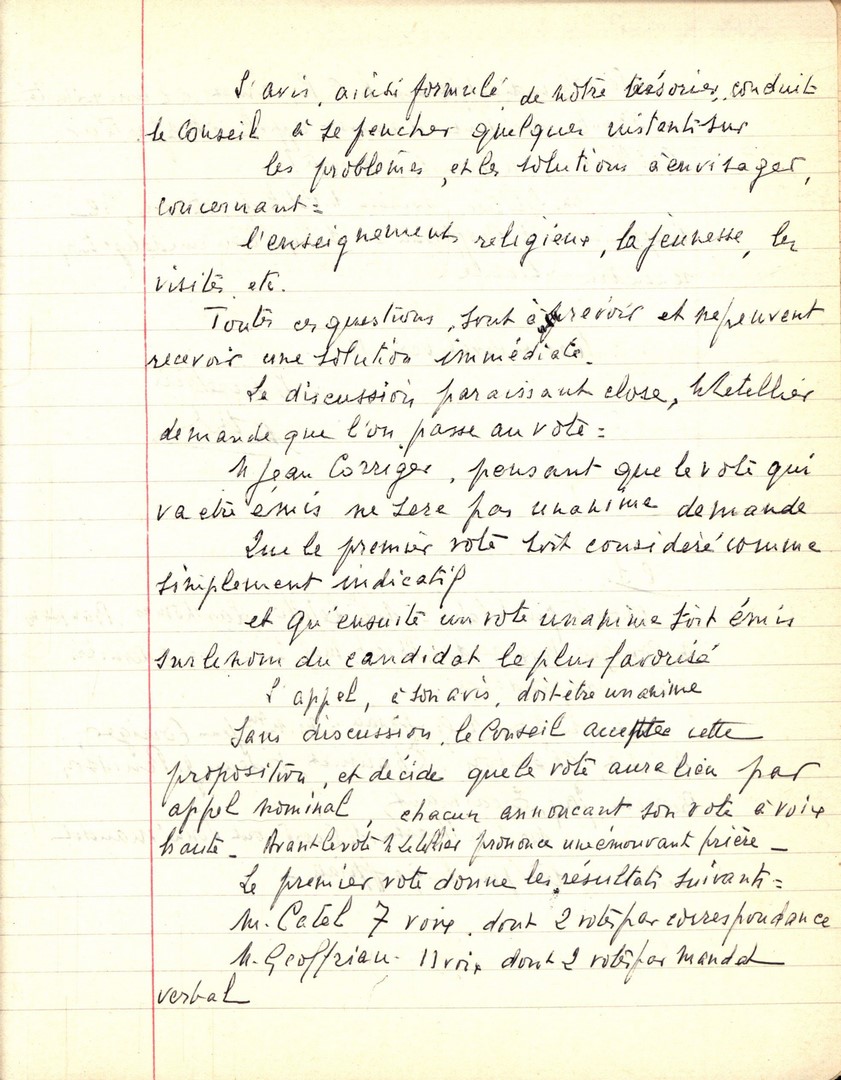 L'avis, ainsi formulé, de notre trésorier, conduit
le Conseil à se pencher quelques instants sur
les problèmes, et les solutions à envisager,
concernant =
l'enseignements religieux, la jeunesse, les
visites etc.
Toutes ces questions, sont à prévoir et ne peuvent
recevoir une solution immédiate.
La discussion paraissant close, M Letellier
demande que l'on passe au vote =
M Jean Corriger, pensant que le vote qui
va être émis ne sera pas unanime demande
Que le premier vote soit considéré comme
simplement indicatif
et qu'ensuite un vote unanime soit émis
sur le nom du candidat le plus favorisé
L'appel, à son avis, doit être unanime
Sans discussion, le Conseil accepte cette
proposition, et décide que le vote aura lieu par
appel nominal, chacun annonçant son vote à voix
haute - Avant le vote M Letellier prononce une émouvant prière -
Le premier vote donne les résultats suivants =
M. Catel 7 voix, dont 2 votes par correspondance
M. Geoffriau - 11 voix dont 2 votes par mandat
verbal